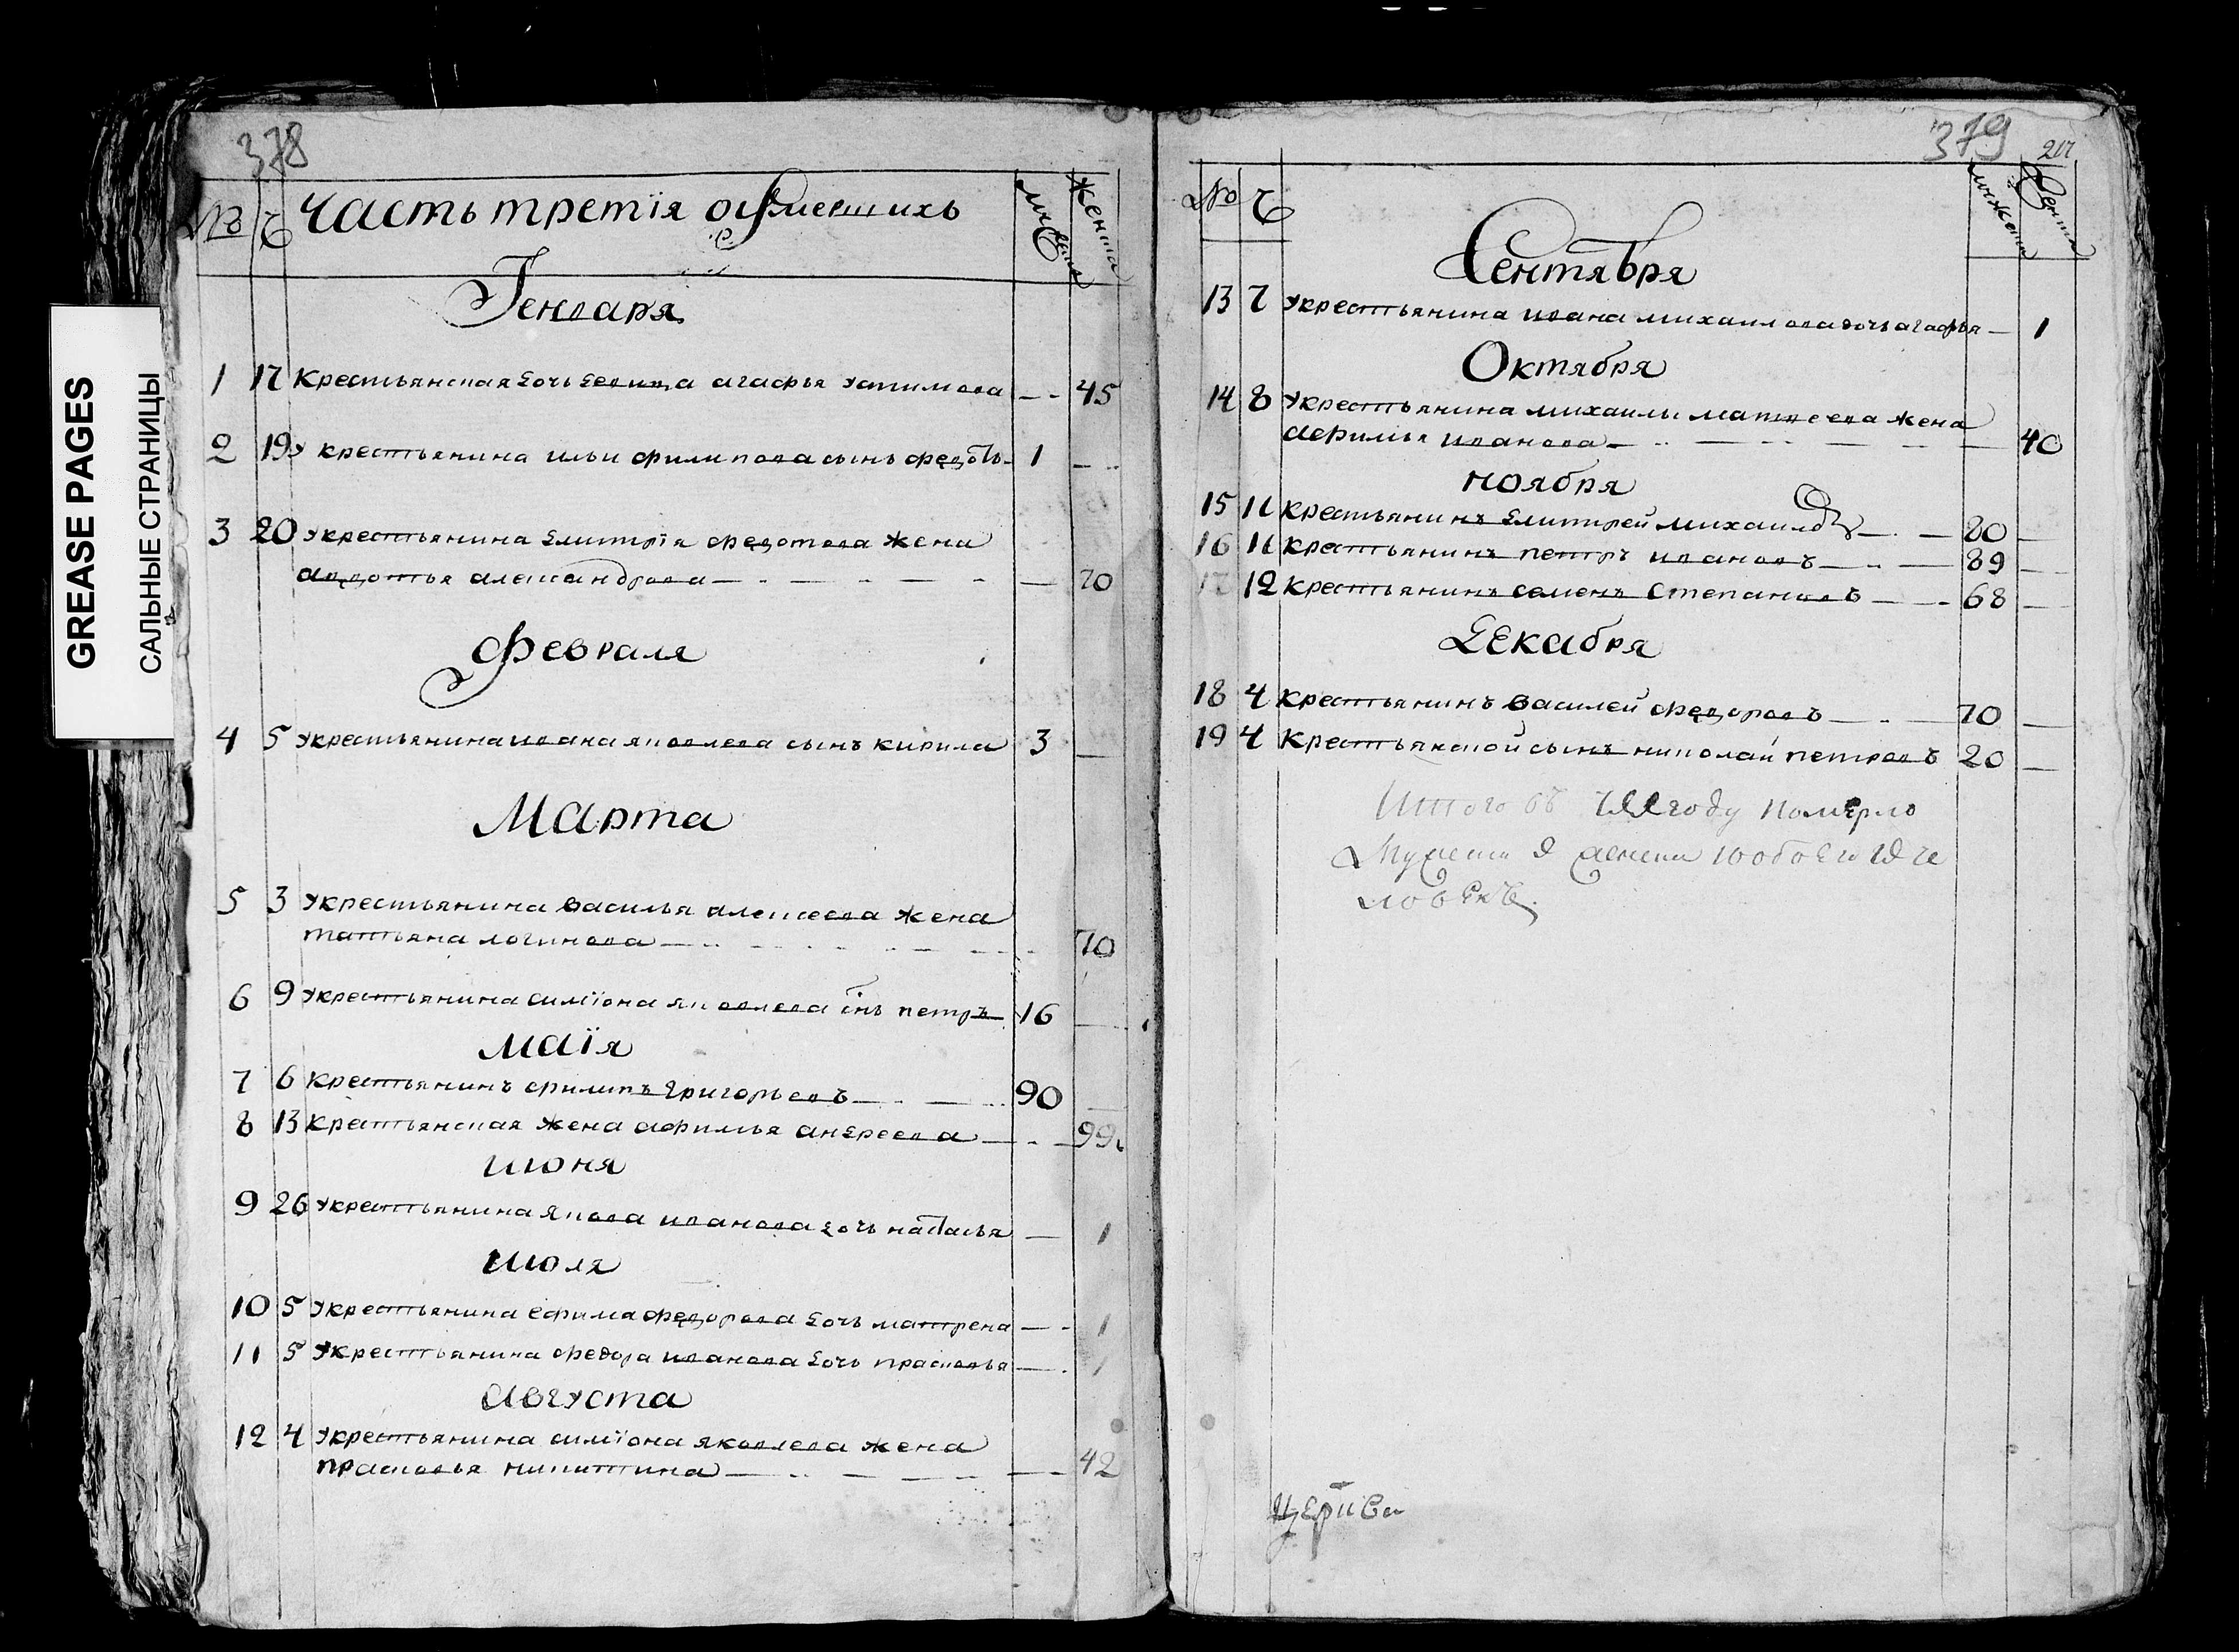 GREASE PAGES
САЛЬНЫЕ СТРАНИЦЫ
378
№ Ч Часть третїя оумершихъ Мужеска Женска
Генваря
1 17 Крестьянская дочь девица агафья устимова — 45
2 19 у крестьянина ильи филипова сынъ федотъ 1 —
3 20 у крестьянина дмитрїя федотова жена
авдотья александрова — 70
Февраля
4 5 у крестьянина ивана яковлева сынъ кирила 3 —
Марта
5 3 у крестьянина василья алексеева жена
татьяна логинова — 70
6 9 у крестьянина симїона яковлева снъ петръ 16 —
Маїя
7 6 крестьянинъ филипъ григорьевъ — 90
8 13 крестьянская жена афимья андреева — 99
июня
9 26 у крестьянина якова иванова дочь настасья — 1
июля
10 5 у крестьянина ефима федорова дочь матрена — 1
11 5 у крестьянина федора иванова дочь прасковья — 1
Августа
12 4 у крестьянина симїона яковлева жена
прасковья никитина — 42
379
217
№ Ч
Сентября
13 7 у крестьянина ивана михаилова дочь агафья — 1
Октября
14 8 у крестьянина михаилы матвеева жена
афимья иванова — 40
ноября
15 11 крестьянинъ дмитрей михаиловъ — 80 —
16 11 крестьянинъ петръ ивановъ — 89 —
17 12 крестьянинъ семенъ степановъ — 68 —
Декабря
18 4 крестьянинъ василей федоровъ — 70 —
19 4 крестьянской сынъ николай петровъ 20 —
Итого въ году померло
Мужеска 9 женска 10 обоего 19 че
ловекъ
церкви